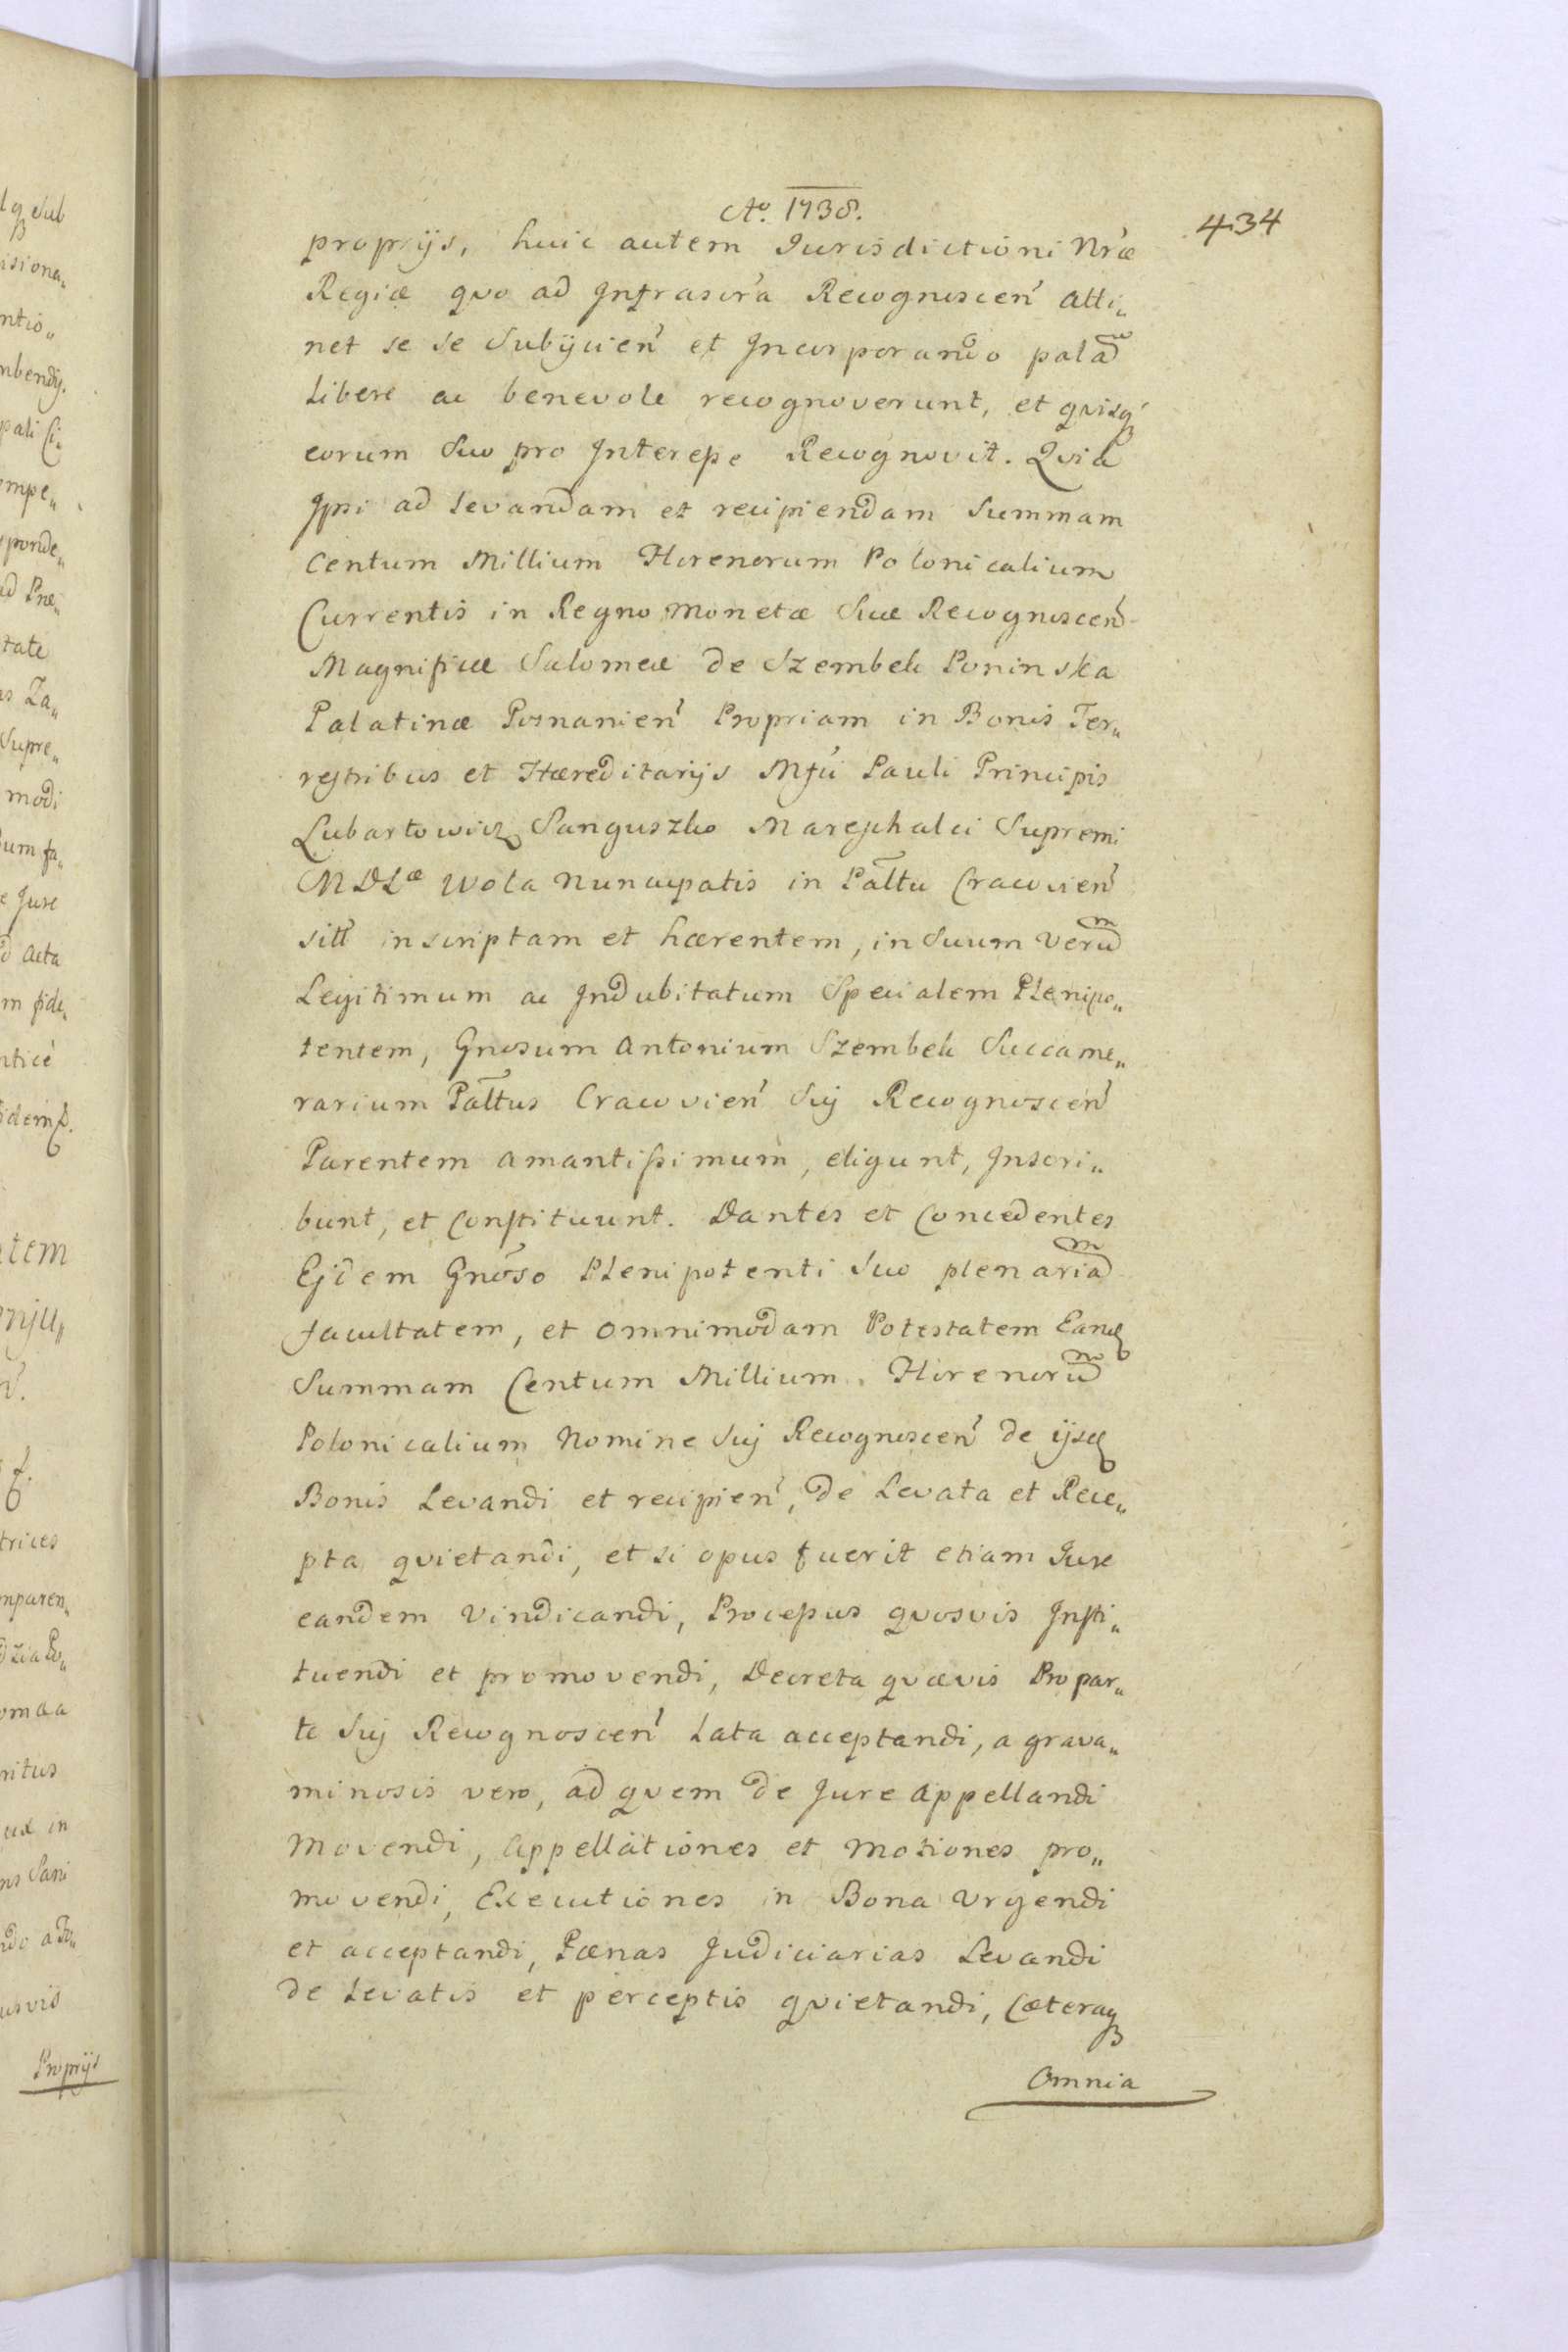 Aº. 1738.
434
proprijs, huic autem Jurisdictioni Nr̃æ
Regiæ quo ad Infrascr̃a Recognoscen̕ atti„
net se se Subijcien̕ et Incorporando palam
Libere ac benevole recognoverunt, et quisq̕
eorum Suo pro Interesse Recognovit. Quia
Ipsi ad levandam et recipiendam Summam
Centum Millium Florenorum Polonicalium
Currentis in Regno monetæ Suæ Recognoscen̕
Magnificæ Salomeæ de Szembek Poninska
Palatinæ Posnanien̕ Propriam in Bonis Ter„
restribus et Hæreditarijs Mfci Pauli Principis
Lubartowicz Sanguszko Mareschalci Supremi
MDLæ Wola nuncupatis in Pałtu Cracovien̕
sitt inscriptam et hærentem, in Suum Verum
Legitimum ac Indubitatum Specialem Plenipo„
tentem, Gnosum Antonium Szembek Succame„
rarium Pałtus Cracovien̕ Suj Recognoscen̕
Parentem amantissimum, eligunt, Inscri„
bunt, et Constituunt. Dantes et Concedentes
Ejdem Gnõso Plenipotenti Suo plenariam
facultatem, et omnimodam Potestatem Eand
Summam Centum Millium Florenorum
Polonicalium Nomine Suj Recognoscen̕ de ijsd
Bonis Levandi et recipien̕, de Levata et Rece„
pta quietandi, et si opus fuerit etiam Jure
eandem Vindicandi, Processus quosvis Insti„
tuendi et promovendi, Decreta quævis Pro par„
te Suj Recognoscen̕ Lata acceptandi, a grava„
minosis vero, ad quem de Jure Appellandi
Movendi, Appellationes et Motiones pro„
movendi, Executiones in Bona Urgendi
et acceptandi, Pænas Judiciarias Levandi
de Levatis et perceptis quietandi, Cæteraq
Omnia